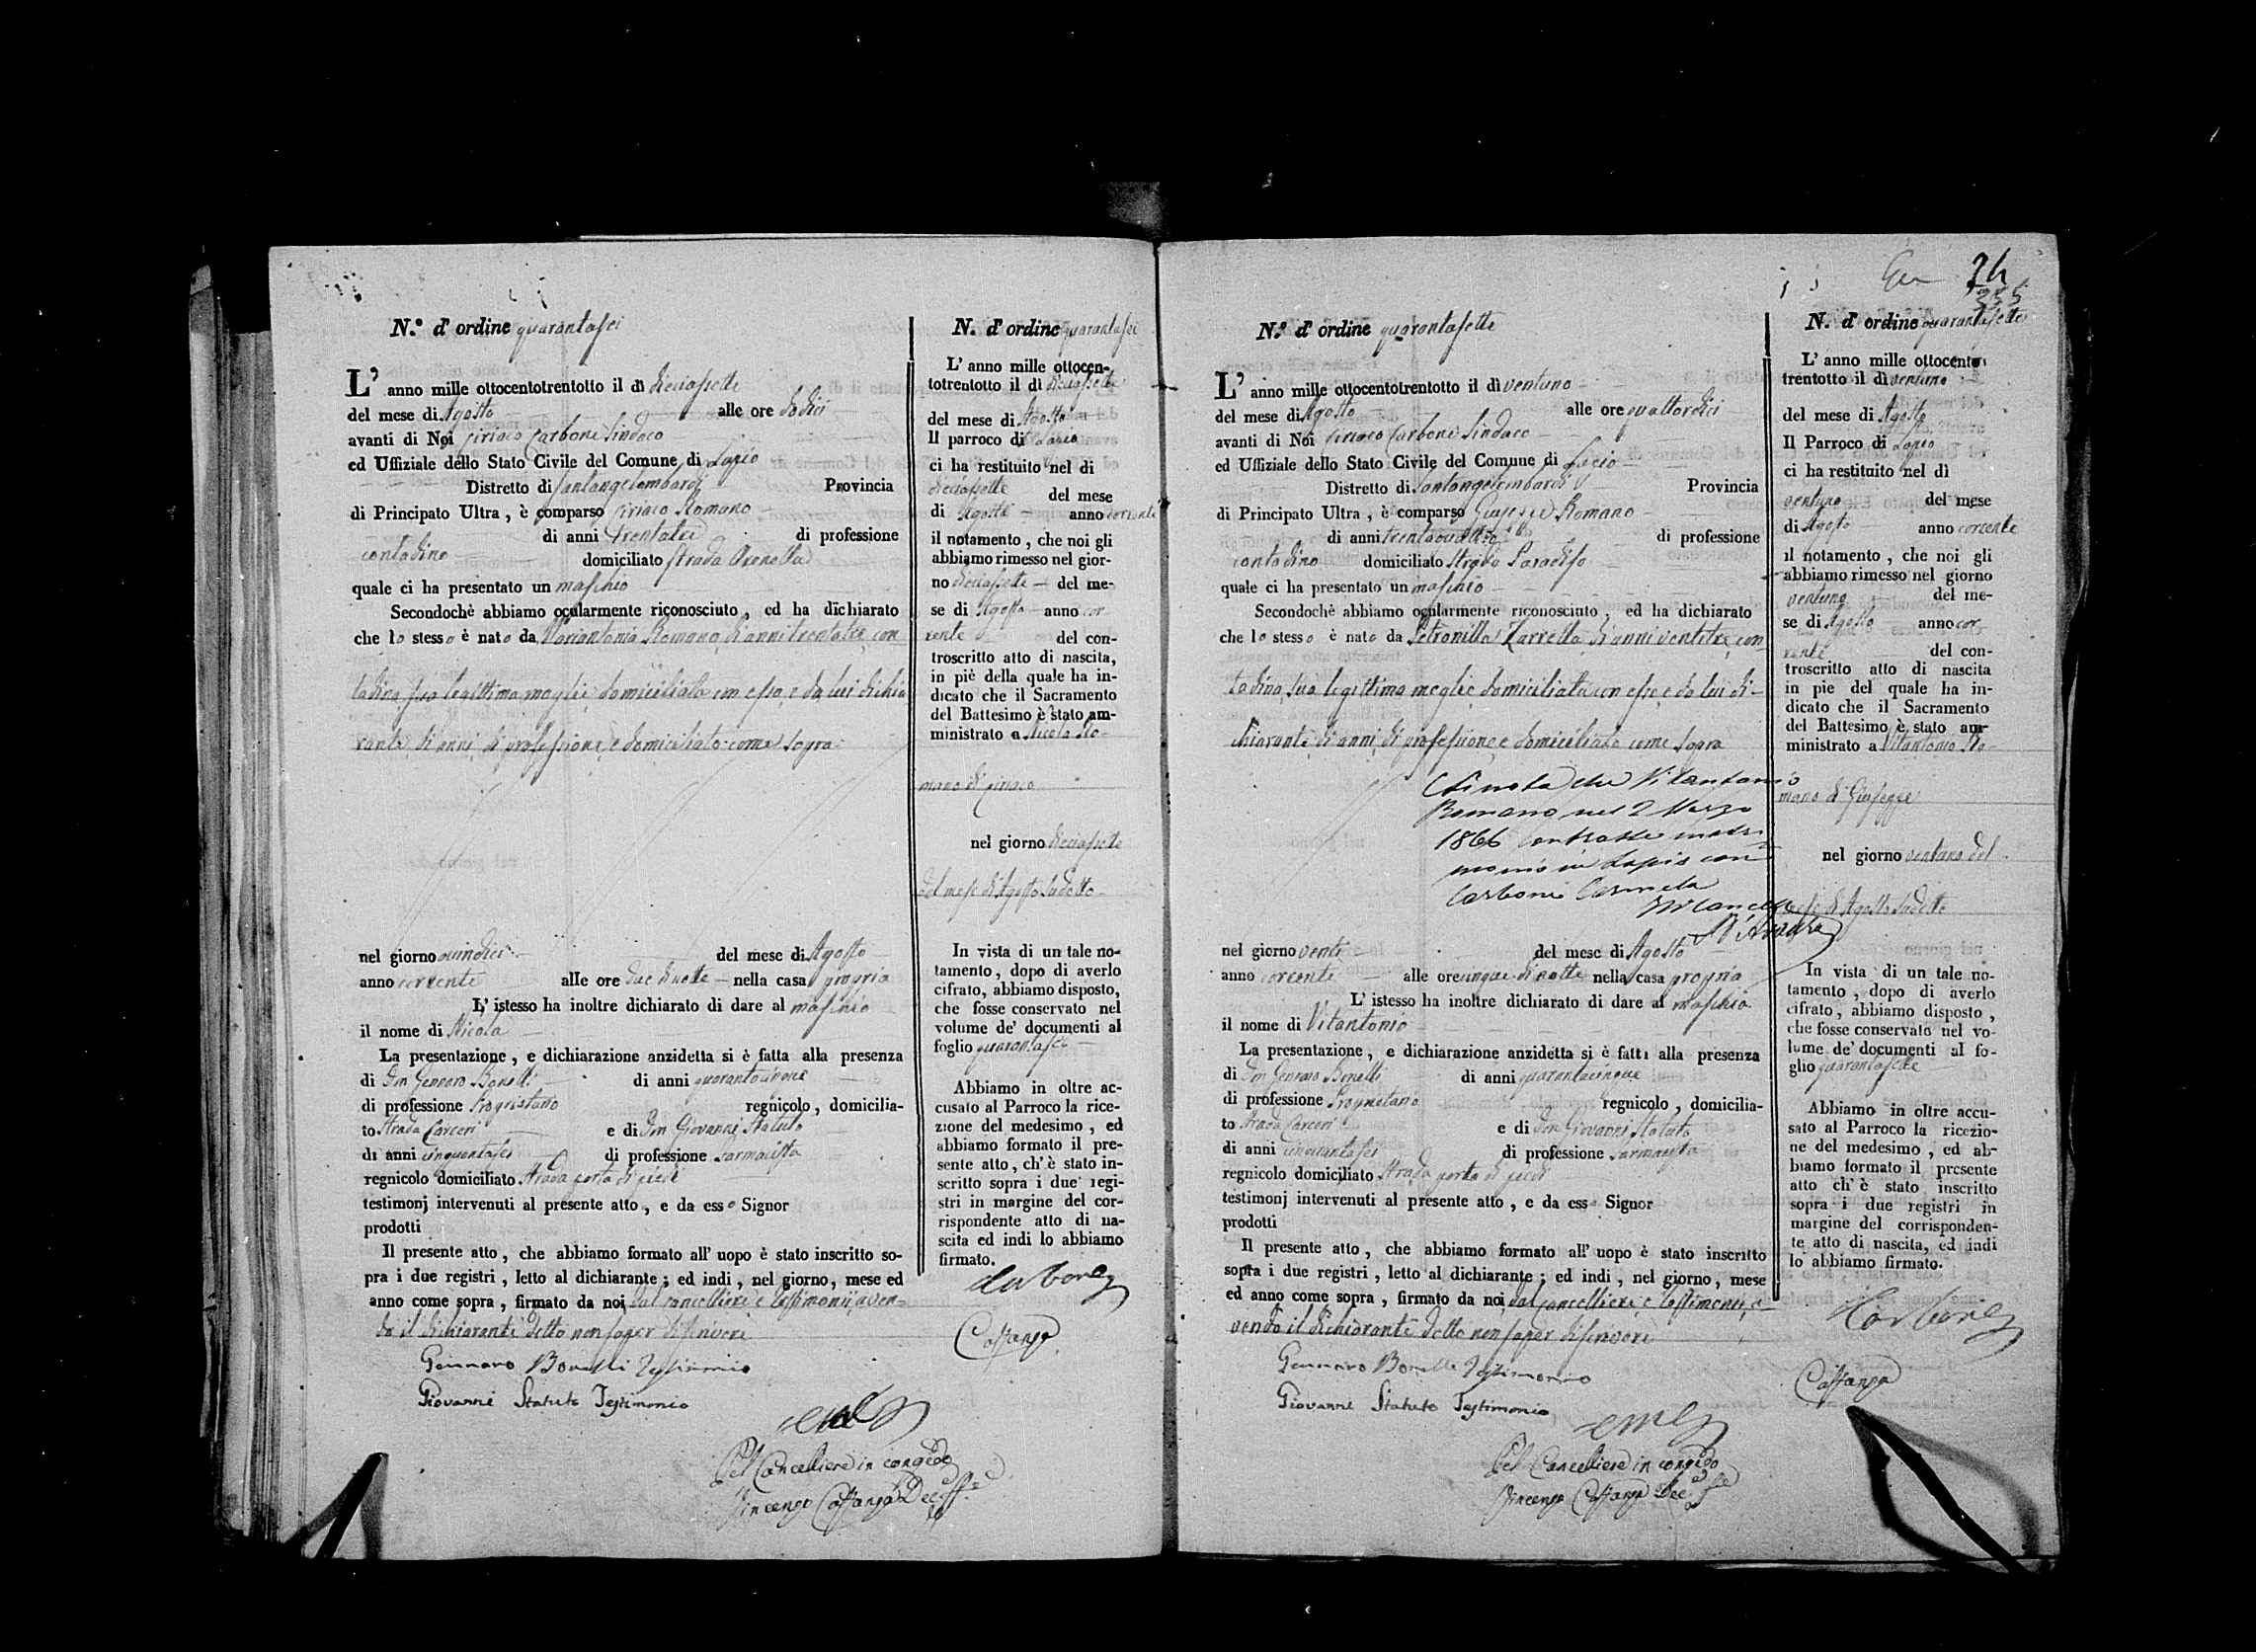 N.º d' ordine quarantasei
L' anno mille ottocentotrentotto il dì diciassette
del mese di Agosto alle ore dodici
avanti di Noi Ciriaco Carbone Sindaco
ed Uffiziale dello Stato Civile del Comune di Lapio
Distretto di Santangelombardi Provincia
di Principato Ultra, è comparso Ciriaco Romano
di anni trentasei di professione
contadino domiciliato strada
quale ci ha presentato un maschio
Secondochè abbiamo ocularmente riconosciuto, ed ha dichiarato
che lo stesso è nato da Mariantonia Romano, di anni trentatre, con
tadina, sua legittima moglie, domiciliata con esso, e da lui dichia
rante, di anni, di professione, e domiciliato come sopra
nel giorno quindici del mese di Agosto
anno corrente alle ore due di notte nella casa propria
L' istesso ha inoltre dichiarato di dare al maschio
il nome di Nicola
La presentazione, e dichiarazione anzidetta si è fatta alla presenza
di Don Gennaro Bonelli di anni quarantacinque
di professione Proprietario regnicolo, domicilia-
to Strada Carceri e di Don Giovanni Statuto
di anni cinquantasei di professione Farmacista
regnicolo domiciliato Strada porta di piedi
testimonj intervenuti al presente atto, e da esso Signor
prodotti
Il presente atto, che abbiamo formato all' uopo è stato inscritto so-
pra i due registri, letto al dichiarante; ed indi, nel giorno, mese ed
anno come sopra, firmato da noi, dal cancelliere, e testimonii, aven-
do il dichiarante detto non saper di scrivere
Gennaro Bonelli Testimonio
Giovanni Statuto Testimonio
Pel Cancelliere in congedo
Vincenzo Caffanzo
N. d' ordine quarantasei
L' anno mille ottocen-
totrentotto il dì diciassette
del mese di Agosto
Il parroco di Lapio
ci ha restituito nel di
diciassette del mese
di Agosto anno corrente
il notamento, che noi gli
abbiamo rimesso nel gior-
no diciassette del me-
se di Agosto anno cor
rente del con-
troscritto atto di nascita,
in piè della quale ha in-
dicato che il Sacramento
del Battesimo è stato am-
ministrato a Nicola Ro-
mano di Ciriaco
nel giorno diciassette
del mese di Agosto sudetto
In vista di un tale no-
tamento, dopo di averlo
cifrato, abbiamo disposto,
che fosse conservato nel
volume de' documenti al
foglio quarantasei
Abbiamo in oltre ac-
cusato al Parroco la rice-
zione del medesimo, ed
abbiamo formato il pre-
sente atto, ch' è stato in-
scritto sopra i due' regi-
stri in margine del cor-
rispondente atto di na-
scita ed indi lo abbiamo
firmato.
Carbone
Caffanzo
24
355
N.º d' ordine quarantasette
L' anno mille ottocentotrentotto il dì ventuno
del mese di Agosto alle ore quattordici
avanti di Noi Ciriaco Carbone Sindaco
ed Uffiziale dello Stato Civile del Comune di Lapio
Distretto di Santangelombardi Provincia
di Principato Ultra, è comparso Giuseppe Romano
di anni trentaquattro di professione
contadino domiciliato Strada Paradiso
quale ci ha presentato un maschio
Secondochè abbiamo ocularmente riconosciuto, ed ha dichiarato
che lo stesso è nato da Petronilla Zarrella, di anni ventitre, con
tadina, sua legittima moglie, domiciliata con esso, e da lui di-
chiarante, di anni, di professione, e domiciliato come sopra
Si nota che Vitantonio
Romano nel 2 Marzo
1866 contrasse matri
monio in Lapio con
Carbone Carmela
nel giorno venti del mese di Agosto
anno corrente alle ore cinque di notte nella casa propria
L' istesso ha inoltre dichiarato di dare al maschio
il nome di Vitantonio
La presentazione, e dichiarazione anzidetta si è fatta alla presenza
di Don Gennaro Bonelli di anni quarantacinque
di professione Proprietario regnicolo, domicilia-
to Strada Carceri e di Don Giovanni Statuto
di anni cinquantasei di professione Farmacista
regnicolo domiciliato Strada porta di piedi
testimonj intervenuti al presente atto, e da esso Signor
prodotti
Il presente atto, che abbiamo formato all' uopo è stato inscritto
sopra i due registri, letto al dichiarante; ed indi, nel giorno, mese
ed anno come sopra, firmato da noi, dal cancelliere, e testimonii, a-
vendo il dichiarante detto non saper di scrivere
Gennaro Bonelli Testimonio
Giovanni Statuto Testimonio
Pel Cancelliere in congedo
Vincenzo Caffanzo
N. d' ordine quarantasette
L' anno mille ottocento
trentotto il dì ventuno
del mese di Agosto
Il Parroco di Lapio
ci ha restituito nel dì
ventuno del mese
di Agosto anno corrente
il notamento, che noi gli
abbiamo rimesso nel giorno
ventuno del me-
se di Agosto anno cor
rente del con-
troscritto atto di nascita
in pie del quale ha in-
dicato che il Sacramento
del Battesimo è stato am-
ministrato a Vitantonio Ro-
mano di Giuseppe
nel giorno ventuno del
mese di Agosto sudetto
In vista di un tale no-
tamento, dopo di averlo
cifrato, abbiamo disposto,
che fosse conservato nel vo-
lume de' documenti al fo-
glio quarantasette
Abbiamo in oltre accu-
sato al Parroco la ricezio-
ne del medesimo, ed ab-
biamo formato il presente
atto ch' è stato inscritto
sopra i due registri in
margine del corrisponden-
te atto di nascita, ed indi
lo abbiamo firmato.
Carbone
Caffanzo